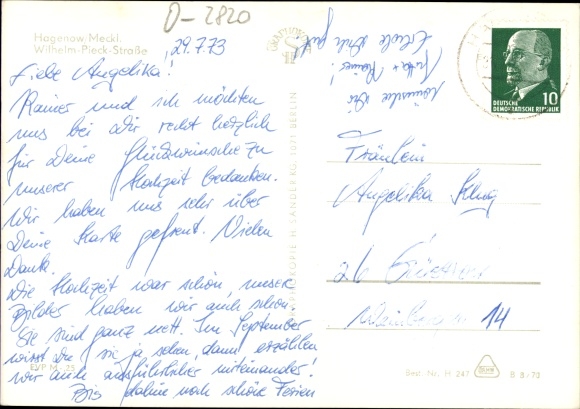 D-2820
Hagenow Meckl.
Wilhelm-Pieck-Straße
29.7.73
Liebe Angelika!
Rainer und ich möchten
uns bei Dir recht herzlich
für Deine Glückwünsche zu
unserer Hochzeit bedanken.
Wir haben uns sehr über
Deine Karte gefreut. Vielen
Dank.
Die Hochzeit war schön, unsere
Bilder haben wir auch schon.
Sie sind ganz nett. Im September
wirst Du sie ja sehen, dann erzählen
wir auch ausführlicher miteinander!
Bis dahin noch schöne Ferien
wünschen Dir
+ Rainer!
Erhole Dich gut!
DEUTSCHE
DEMOKRATISCHE REPUBLIK
10
Fräulein
Angelika
26 Güstrow
14
EVP M -,25
Best. Nr. H 247
B 8/73